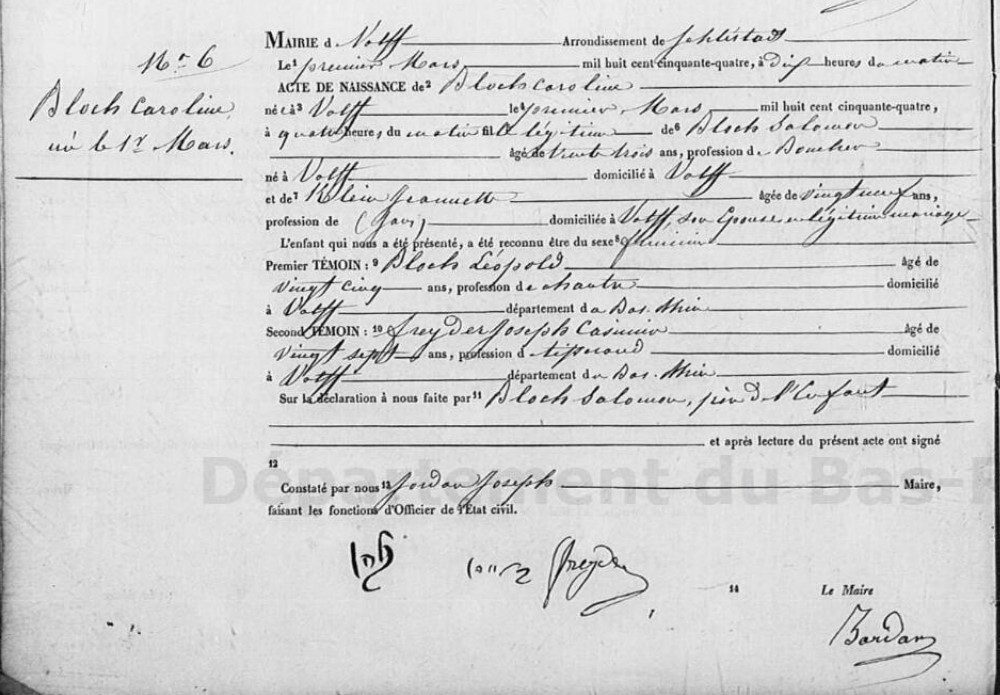 Nº 6
Bloch Caroline
né le 1er Mars.
MAIRIE d Valff Arrondissement de Schlestadt
Le¹ premier Mars mil huit cent cinquante-quatre, à dix heures du matin
ACTE DE NAISSANCE de² Bloch Caroline
né e à³ Valff le⁴ premier Mars mil huit cent cinquante-quatre,
à quatre heures du matin fille légitime de⁶ Bloch Salomon
âgé de trente trois ans, profession de Boucher
né à Valff domicilié à Valff
et de⁷ Klein Jeannette âgée de vingt neuf ans,
profession de domiciliée à Valff, son épouse en légitime mariage
L'enfant qui nous a été présenté, a été reconnu être du sexe⁸ féminin
Premier TÉMOIN : ⁹ Bloch Léopold âgé de
vingt cinq ans, profession de chantre domicilié
à Valff département du Bas-Rhin
Second TÉMOIN : ¹⁰ Freyder Joseph Casimir âgé de
vingt sept ans, profession de tisserand domicilié
à Valff département du Bas-Rhin
Sur la déclaration à nous faite par¹¹ Bloch Salomon, père de l'Enfant
et après lecture du présent acte ont signé
12
Département du Bas-R
Constaté par nous¹³ Jordan Joseph Maire,
faisant les fonctions d'Officier de l'État civil.
Freyder
14 Le Maire
Jordan